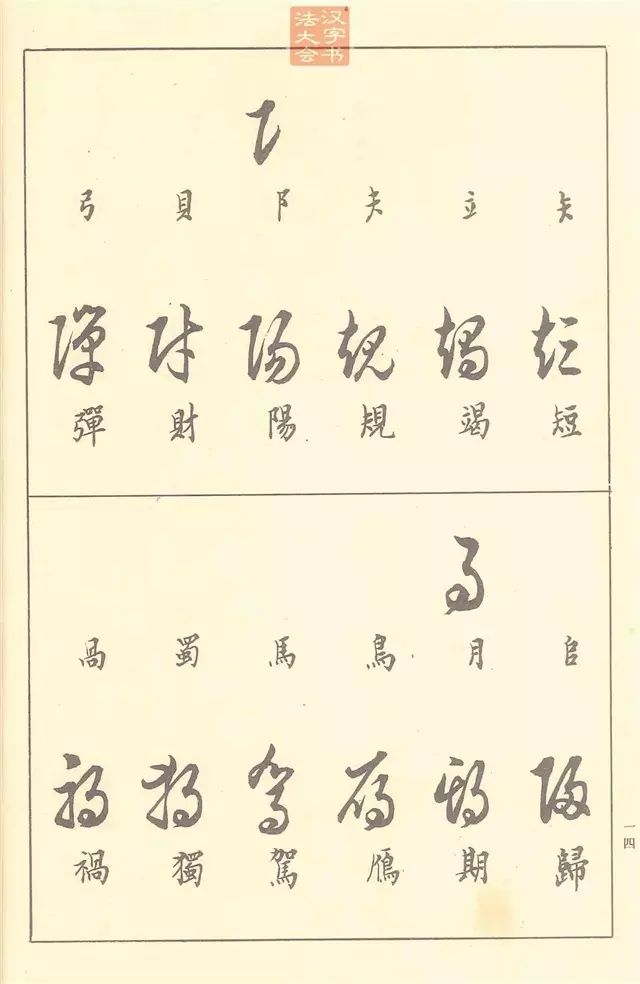 汉字书
法大会
矢 立 夫 阝 貝 弓
短 竭 規 陽 財 彈
𠂤 月 鳥 馬 蜀 咼
歸 期 鴈 駕 獨 禍
一四